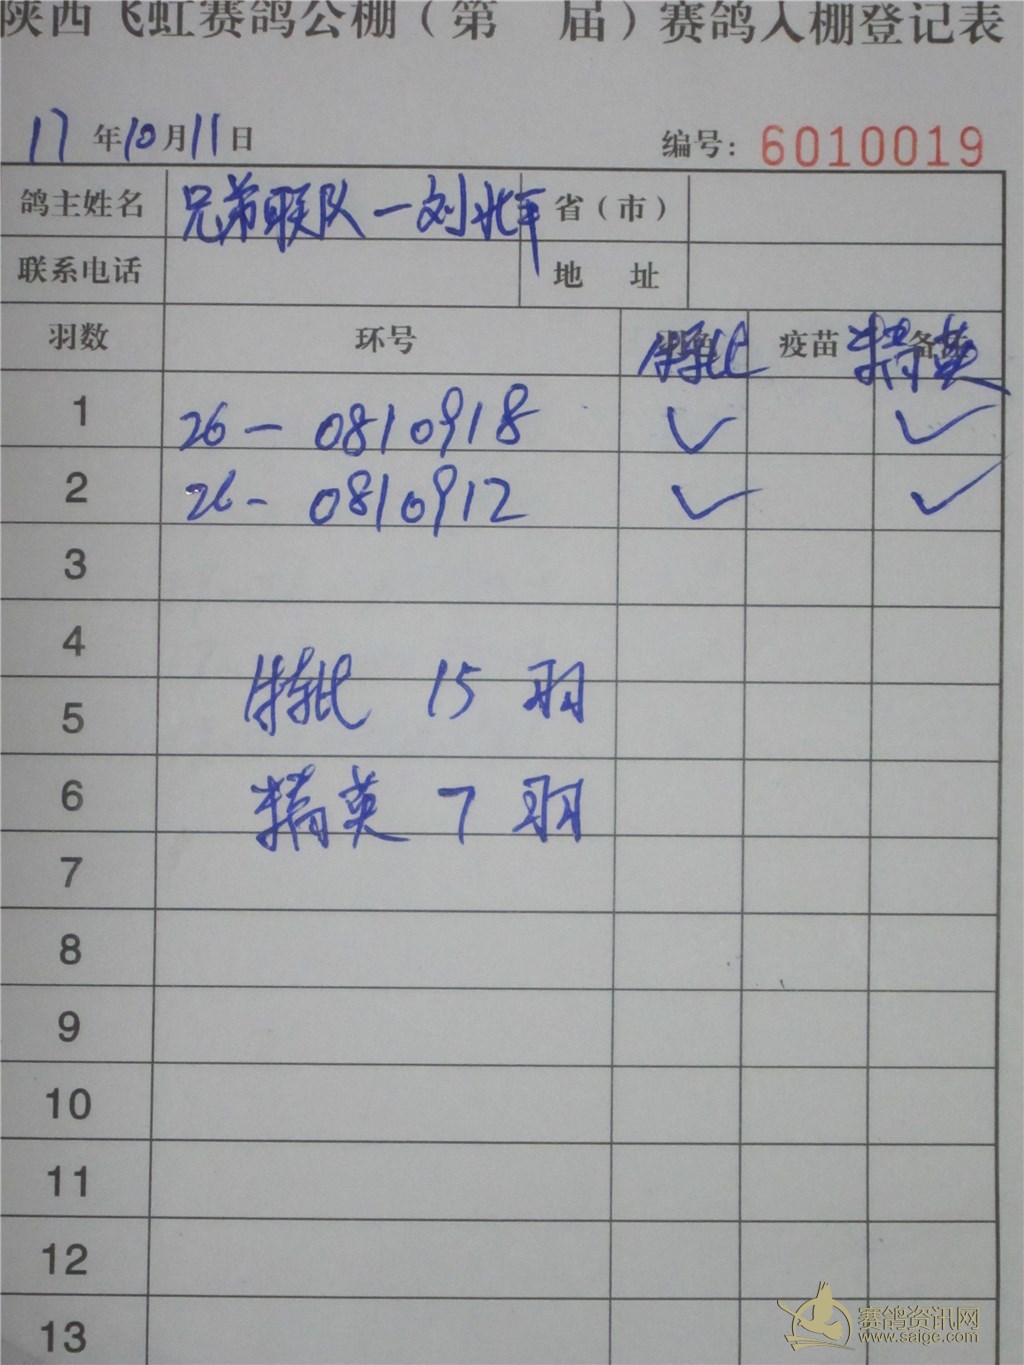 陕西飞虹赛鸽公棚（第 届）赛鸽入棚登记表
17年10月11日 编号：6010019
鸽主姓名 兄弟联队一刘北平 省（市）
联系电话 地 址
羽数 环号 疫苗 精英
1 26-0810918 ✓ ✓
2 26-0810912 ✓ ✓
3
4
15羽
5
6
精英 7羽
7
8
9
10
11
12
13
赛鸽资讯网
www.saige.com